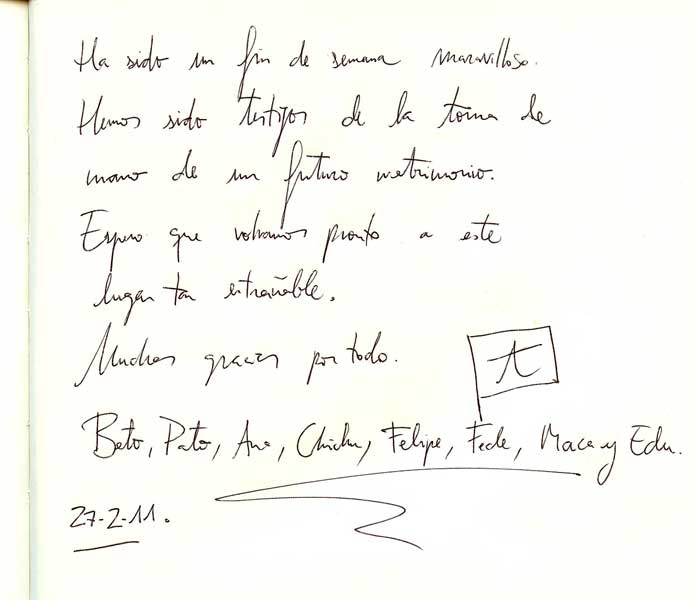 Ha sido un fin de semana maravilloso.
Hemos sido testigos de la toma de
mano de un futuro matrimonio.
Espero que volvamos pronto a este
lugar tan entrañable.
Muchas gracias por todo.
A
Beto, Pato, Ana, Chichu, Felipe, Fede, Maca y Edu.
27-2-11.